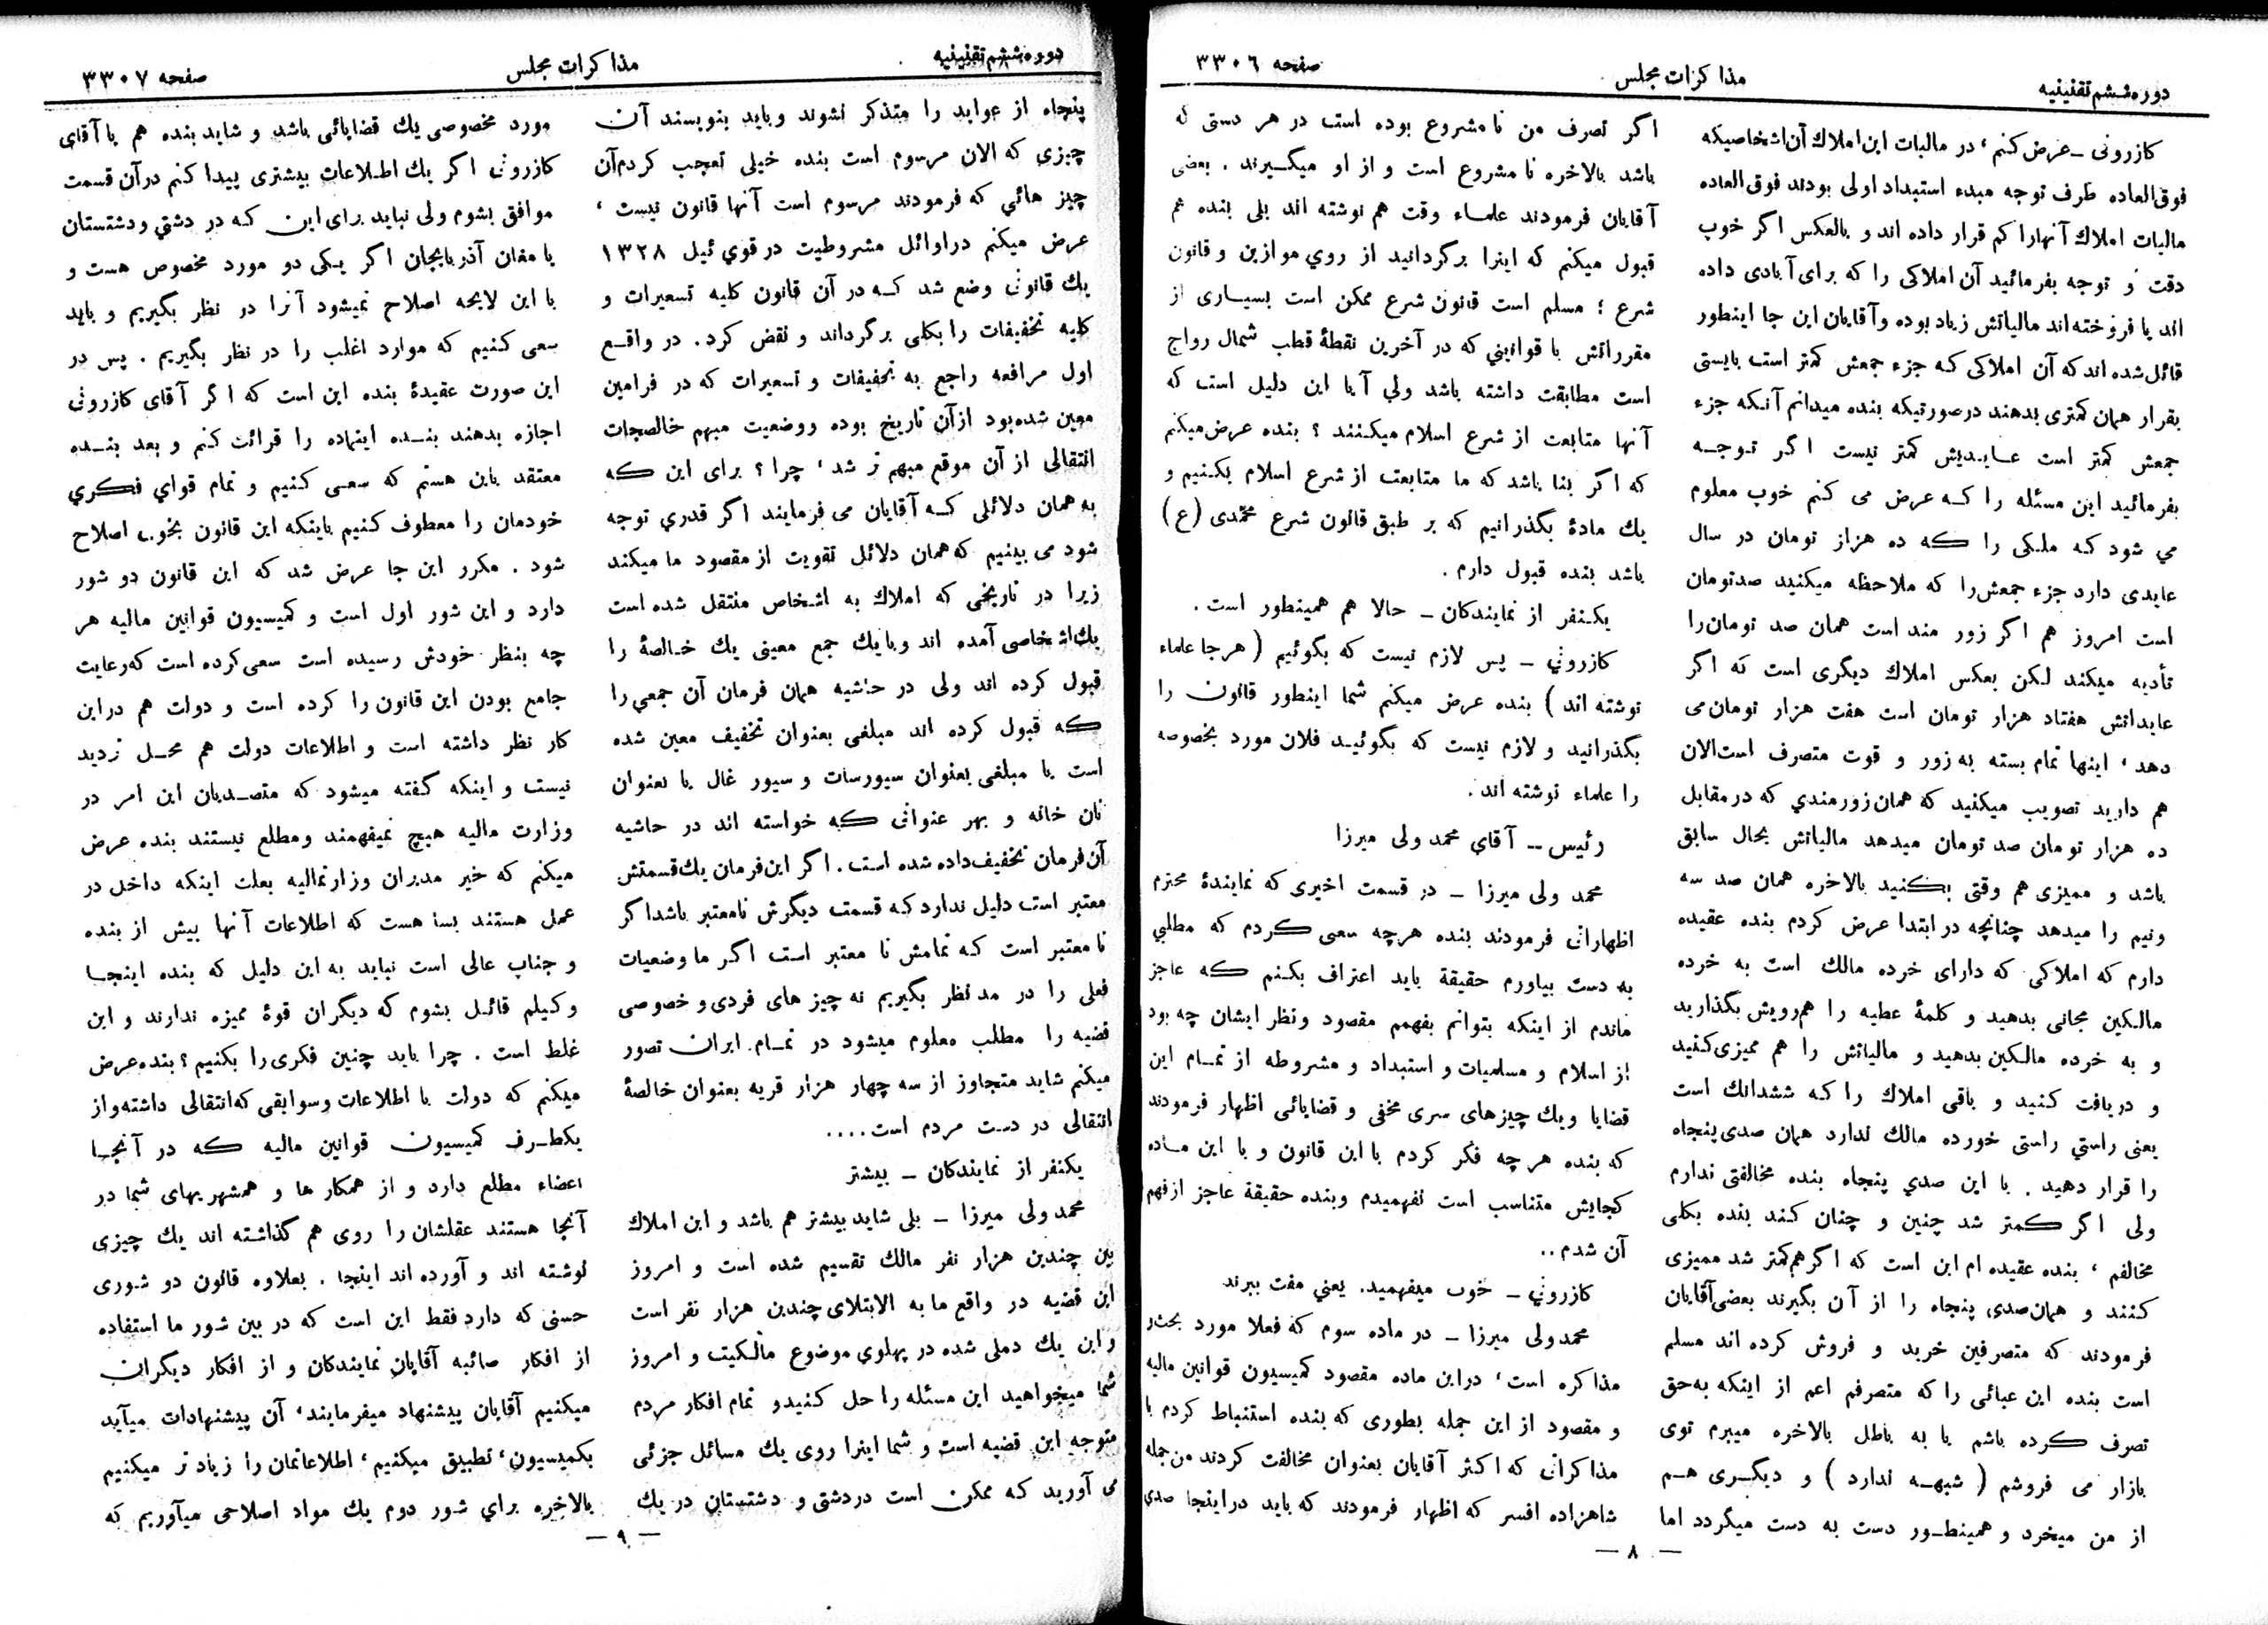 دوره ششم تقنینیه
مذاکرات مجلس
صفحه ۳۳۰۶
کازرونی ـ عرض کنم ، در مالیات این املاك آن اشخاصیکه
فوق‌العاده طرف توجه مبدء استبداد اولی بودند فوق‌العاده
مالیات املاك آنهارا کم قرار داده اند و بالعکس اگر خوب
دقت و توجه بفرمائید آن املاکی را که برای آبادی داده
اند یا فروخته‌اند مالیاتش زیاد بوده و آقایان این جا اینطور
قائل شده اند که آن املاکی که جزء جمعش کمتر است بایستی
بقرار همان کمتری بدهند درصورتیکه بنده میدانم آنکه جزء
جمعش کمتر است عایدیش کمتر نیست اگر توجه
بفرمائید این مسئله را که عرض می کنم خوب معلوم
می شود که ملکی را که ده هزار تومان در سال
عایدی دارد جزء جمعش را که ملاحظه میکنید صد تومان
است امروز هم اگر زور مند است همان صد تومان را
تأدیه میکند لکن بعکس املاك دیگری است که اگر
عایداتش هفتاد هزار تومان است هفت هزار تومان می
دهد ، اینها تمام بسته به زور و قوت متصرف است الان
هم دارید تصویب میکنید که همان زورمندي که در مقابل
ده هزار تومان صد تومان میدهد مالیاتش بحال سابق
باشد و ممیزی هم وقتی بکنید بالاخره همان صد سه
ونیم را میدهد چنانچه در ابتدا عرض کردم بنده عقیده
دارم که املاکی که دارای خرده مالك است به خرده
مالکین مجانی بدهید و کلمهٔ عطیه را هم رویش بگذارید
و به خرده مالکین بدهید و مالیاتش را هم ممیزی کنید
و دریافت کنید و باقی املاك را که ششدانك است
یعنی راستي راستی خورده مالك ندارد همان صدی پنجاه
را قرار دهید . با این صدي پنجاه بنده مخالفتی ندارم
ولی اگر کمتر شد چنین و چنان کند بنده بکلی
مخالفم ، بنده عقیده ام این است که اگر هم کمتر شد ممیزی
کنند و همان صدی پنجاه را از آن بگیرند بعضی آقایان
فرمودند که متصرفین خرید و فروش کرده اند مسلم
است بنده این عبائی را که متصرفم اعم از اینکه به حق
تصرف کرده باشم یا به باطل بالاخره میبرم توی
بازار می فروشم ( شبهه ندارد ) و دیگری هم
از من میخرد و همینطور دست به دست میگردد اما
اگر تصرف من نا مشروع بوده است در هر دستی که
باشد بالاخره نا مشروع است و از او میگیرند . بعضی
آقایان فرمودند علماء وقت هم نوشته اند بلی بنده هم
قبول میکنم که اینرا برگردانید از روي موازین و قانون
شرع ؛ مسلم است قانون شرع ممکن است بسیاری از
مقرراتش با قوانیني که در آخرین نقطهٔ قطب شمال رواج
است مطابقت داشته باشد ولي آیا این دلیل است که
آنها متابعت از شرع اسلام میکنند ؟ بنده عرض میکنم
که اگر بنا باشد که ما متابعت از شرع اسلام بکنیم و
یك مادهٔ بگذرانیم که بر طبق قانون شرع محمّدی (ع)
باشد بنده قبول دارم .
یکنفر از نمایندکان ـ حالا هم همینطور است .
کازرونی ـ پس لازم نیست که بگوئیم ( هرجا علماء
نوشته اند ) بنده عرض میکنم شما اینطور قانون را
بگذرانید و لازم نیست که بگوئید فلان مورد بخصوصه
را علماء نوشته اند .
رئیس ـ آقاي محمد ولی میرزا
محمد ولی میرزا ـ در قسمت اخیری که نمایندهٔ محترم
اظهاراتی فرمودند بنده هرچه سعی کردم که مطلبي
به دست بیاورم حقیقة باید اعتراف بکنم که عاجز
ماندم از اینکه بتوانم بفهمم مقصود ونظر ایشان چه بود
از اسلام و مسلمیات و استبداد و مشروطه از تمام این
قضایا ویك چیزهای سری مخفی و قضایائی اظهار فرمودند
که بنده هر چه فکر کردم با این قانون و با این ماده
کجایش متناسب است نفهمیدم وبنده حقیقة عاجز از فهم
آن شدم ..
کازروني ـ خوب میفهمید. یعني مفت ببرند
محمد ولی میرزا ـ در ماده سوم که فعلا مورد بحث و
مذاکره است ، دراین ماده مقصود کمیسیون قوانین مالیه
و مقصود از این جمله بطوری که بنده استنباط کردم با
مذاکراتی که اکثر آقایان بعنوان مخالفت کردند من جمله
شاهزاده افسر که اظهار فرمودند که باید دراینجا صدي
— ۸ —
دوره ششم تقنینیه
مذاکرات مجلس
صفحه ۳۳۰۷
پنجاه از عواید را متذکر نشوند وباید بنویسند آن
چیزي که الان مرسوم است بنده خیلی تعجب کردم آن
چیز هائي که فرمودند مرسوم است آنها قانون نیست ،
عرض میکنم دراوائل مشروطیت در قوي ئیل ۱۳۲۸
یك قانونی وضع شد که در آن قانون کلیه تسعیرات و
کلیه تخفیفات را بکلی برگرداند و نقض کرد . در واقع
اول مرافعه راجع به تخفیفات و تسعیرات که در فرامین
معین شده بود از آن تاریخ بوده و وضعیت مبهم خالصجات
انتقالی از آن موقع مبهم تر شد ، چرا ؟ برای این که
به همان دلائلی که آقایان می فرمایند اگر قدري توجه
شود می بینیم که همان دلائل تقویت از مقصود ما میکند
زیرا در تاریخی که املاك به اشخاص منتقل شده است
یك اشخاصی آمده اند وبایك جمع معینی یك خالصهٔ را
قبول کرده اند ولی در حاشیه همان فرمان آن جمعي را
که قبول کرده اند مبلغی بعنوان تخفیف معین شده
است یا مبلغی بعنوان سیورسات و سیور غال یا بعنوان
نان خانه و بهر عنوانی که خواسته اند در حاشیه
آن فرمان تخفیف داده شده است . اگر این فرمان یك قسمتش
معتبر است دلیل ندارد که قسمت دیگرش نامعتبر باشد اگر
نا معتبر است که تمامش نا معتبر است اگر ما وضعیات
فعلی را در مد نظر بگیریم نه چیز های فردی و خصوصی
قضیه را مطلب معلوم میشود در تمام ایران تصور
میکنم شاید متجاوز از سه چهار هزار قریه بعنوان خالصهٔ
انتقالی در دست مردم است ....
یکنفر از نمایندکان ـ بیشتر
محمد ولی میرزا ـ بلی شاید بیشتر هم باشد و این املاك
بین چندین هزار نفر مالك تقسیم شده است و امروز
این قضیه در واقع ما به الابتلای چندین هزار نفر است
و این یك دملی شده در پهلوي موضوع مالکیت و امروز
شما میخواهید این مسئله را حل کنید و تمام افکار مردم
متوجه این قضیه است و شما اینرا روی یك مسائل جزئی
می آورید که ممکن است دردشتی و دشتستان در یك
مورد مخصوصی یك قضایائی باشد و شاید بنده هم با آقای
کازرونی اگر یك اطلاعات بیشتری پیدا کنم درآن قسمت
موافق بشوم ولی نباید برای این که در دشتي ودشتستان
یا مغان آذربایجان اگر یکی دو مورد مخصوص هست و
با این لایحه اصلاح نمیشود آنرا در نظر بگیریم و باید
سعی کنیم که موارد اغلب را در نظر بگیریم . پس در
این صورت عقیدهٔ بنده این است که اگر آقای کازرونی
اجازه بدهند بنده اینماده را قرائت کنم و بعد بنده
معتقد باین هستم که سعی کنیم و تمام قواي فکري
خودمان را معطوف کنیم باینکه این قانون بخوبی اصلاح
شود . مکرر این جا عرض شد که این قانون دو شور
دارد و این شور اول است و کمیسیون قوانین مالیه هر
چه بنظر خودش رسیده است سعی کرده است که رعایت
جامع بودن این قانون را کرده است و دولت هم در این
کار نظر داشته است و اطلاعات دولت هم محل تردید
نیست و اینکه گفته میشود که متصدیان این امر در
وزارت مالیه هیچ نمیفهمند و مطلع نیستند بنده عرض
میکنم که خیر مدیران وزارتمالیه بعلت اینکه داخل در
عمل هستند بسا هست که اطلاعات آنها بیش از بنده
و جناب عالی است نباید به این دلیل که بنده اینجا
وکیلم قائل بشوم که دیگران قوهٔ ممیزه ندارند و این
غلط است . چرا باید چنین فکری را بکنیم ؟ بنده عرض
میکنم که دولت با اطلاعات وسوابقی که انتقالی داشته و از
یکطرف کمیسیون قوانین مالیه که در آنجا
اعضاء مطلع دارد و از همکار ها و همشهریهای شما در
آنجا هستند عقلشان را روی هم گذاشته اند یك چیزی
نوشته اند و آورده اند اینجا . بعلاوه قانون دو شوری
حسنی که دارد فقط این است که در بین شور ما استفاده
از افکار صائبه آقایان نمایندکان و از افکار دیگران
میکنیم آقایان پیشنهاد میفرمایند ، آن پیشنهادات میآید
بکمیسیون ، تطبیق میکنیم ، اطلاعاتمان را زیاد تر میکنیم
بالاخره براي شور دوم یك مواد اصلاحی میآوریم که
— ۹ —